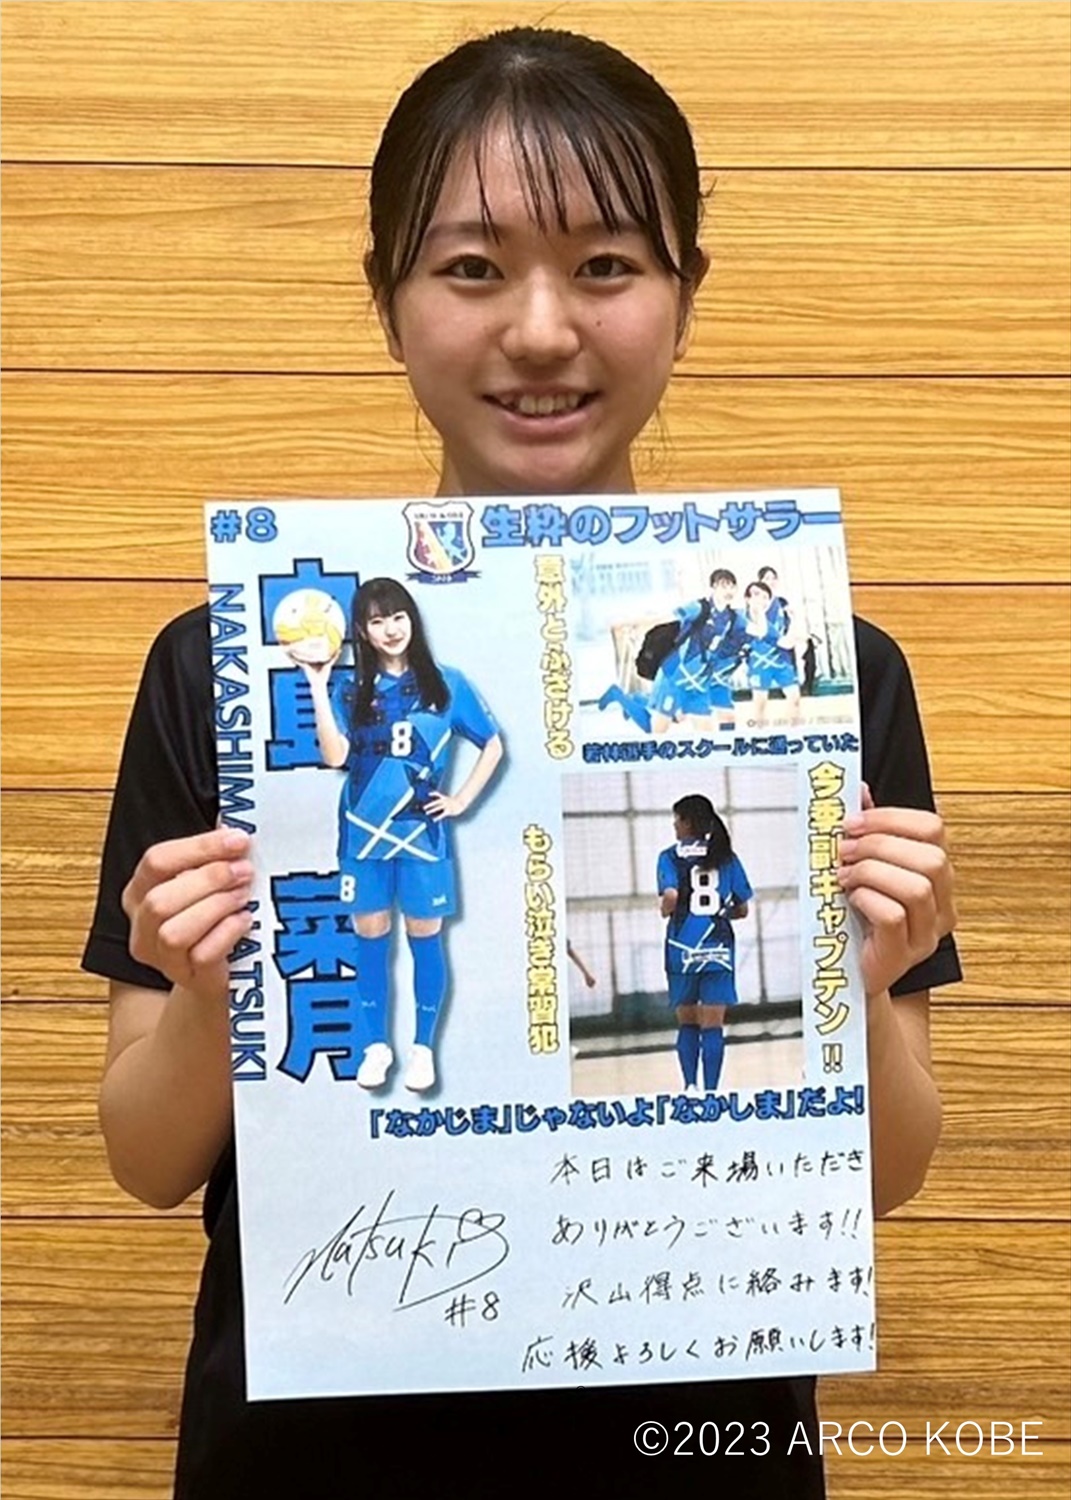 #8
生粋のフットサラー
中島 菜月
NAKASHIMA NATSUKI
意外とふざける
若林選手のスクールに通っていた
今季副キャプテン!!
もらい泣き常習犯
8
8
8
「なかじま」じゃないよ「なかしま」だよ!
本日はご来場いただき
ありがとうございます!!
沢山得点に絡みます!
応援よろしくお願いします!
Natsuki
#8
©2023 ARCO KOBE